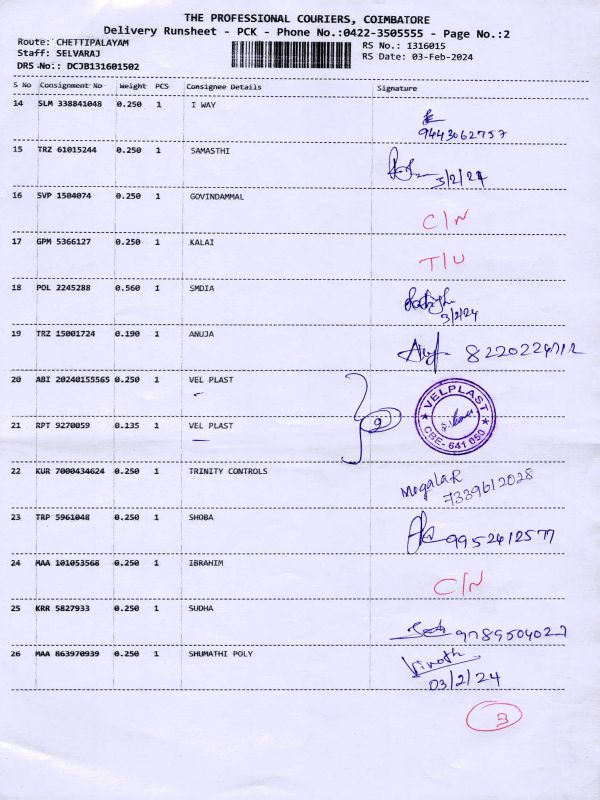 THE PROFESSIONAL COURIERS, COIMBATORE
Delivery Runsheet - PCK - Phone No.:0422-3505555 - Page No.:2
Route: CHETTIPALAYAM
Staff: SELVARAJ
DRS No.: DCJB131601502
RS No.: 1316015
RS Date: 03-Feb-2024
S No Consignment No Weight PCS Consignee Details Signature
14 SLM 338841048 0.250 1 I WAY
9443062757
15 TRZ 61015244 0.250 1 SAMASTHI
3/2/24
16 SVP 1504074 0.250 1 GOVINDAMMAL
C/N
17 GPM 5366127 0.250 1 KALAI
T/U
18 POL 2245288 0.560 1 SMDIA
3/2/24
19 TRZ 15001724 0.190 1 ANUJA
20 ABI 20240155565 0.250 1 VEL PLAST
VELPLAST
CBE- 641 050
2
21 RPT 9270059 0.135 1 VEL PLAST
22 KUR 7000434624 0.250 1 TRINITY CONTROLS
7339612028
23 TRP 5961048 0.250 1 SHOBA
9952412577
24 MAA 101053568 0.250 1 IBRAHIM
C/N
25 KRR 5827933 0.250 1 SUDHA
9789504027
26 MAA 863970939 0.250 1 SHUMATHI POLY
Vinoth
03/2/24
3